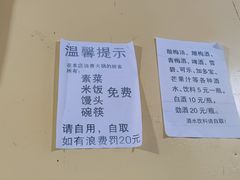 温馨提示
在本店消费火锅的顾客
拥有:
素菜
米饭
馒头
碗筷
免费
请自用,自取
如有浪费罚20元
酸梅汤、雕梅酒、
青梅酒、啤酒、雪
碧、可乐、加多宝、
芒果汁等各种酒
水、饮料 5元一瓶,
白酒 10元/瓶,
劲酒 20元/瓶。
酒水饮料请自取!